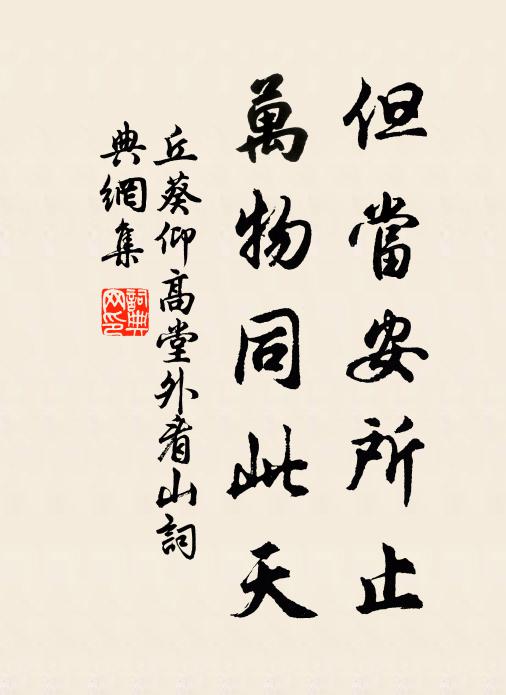 但當安所止
萬物同此天
丘葵仰高堂外看山詞
典網集
詞典網印